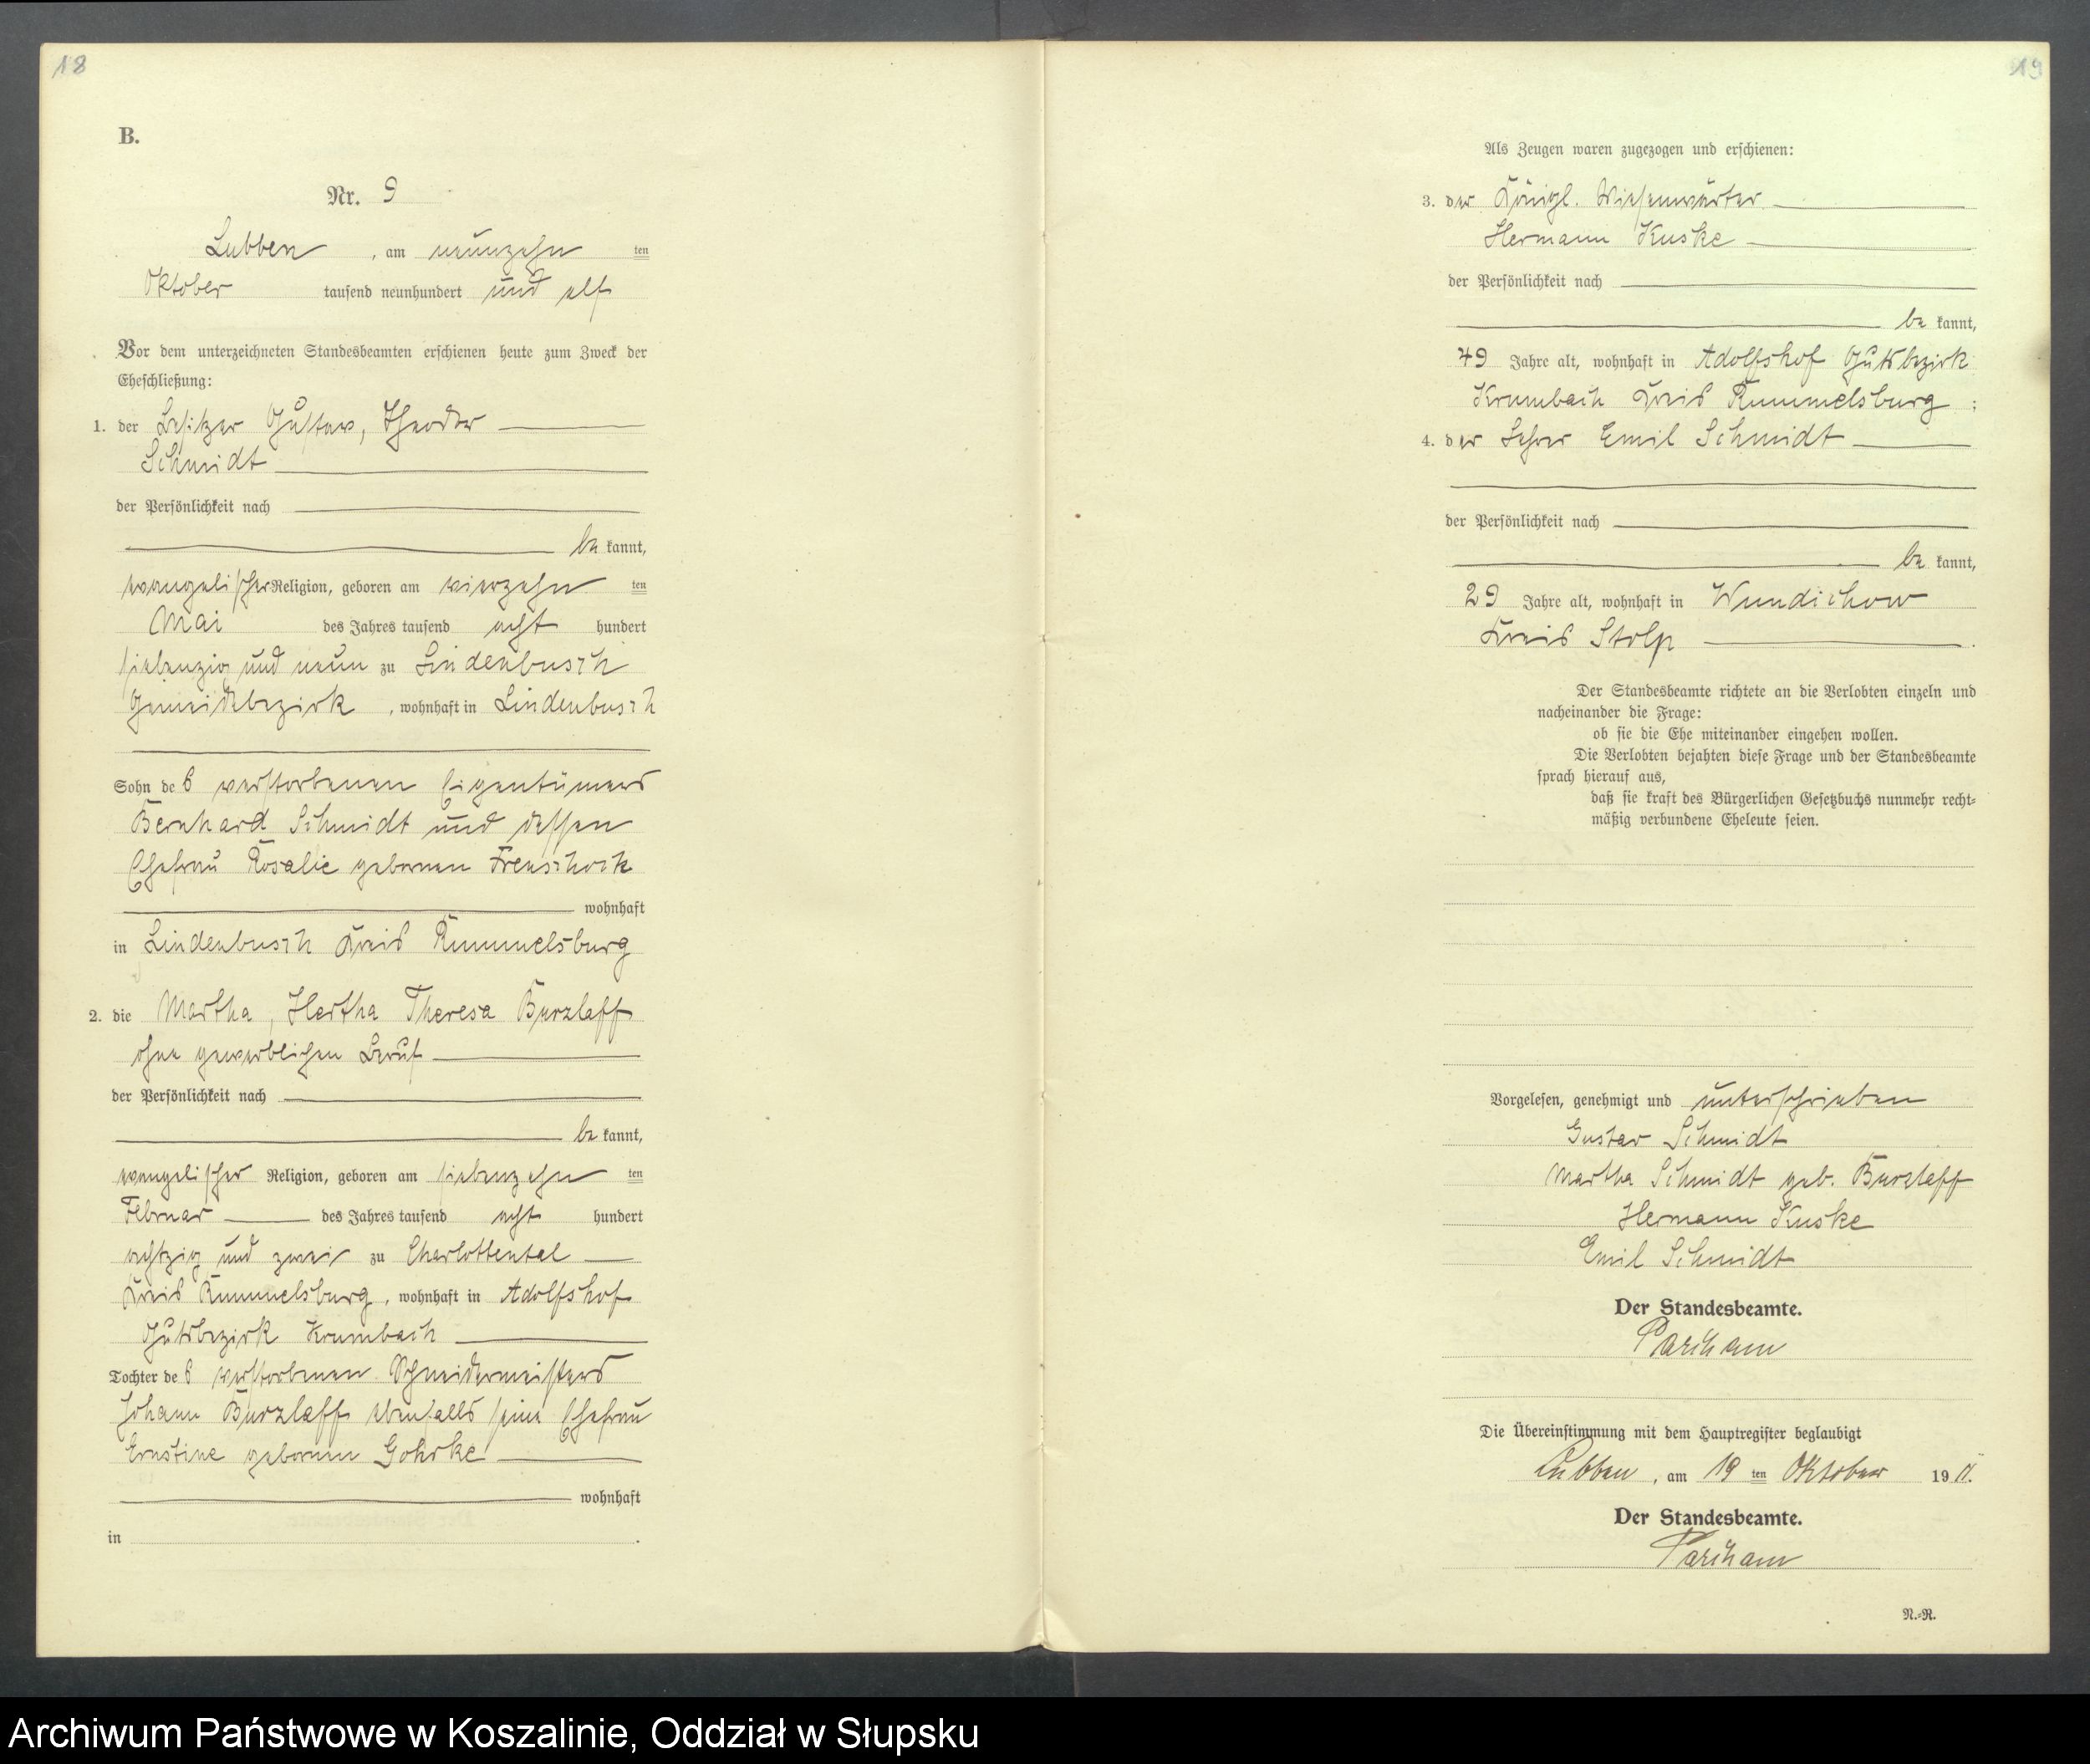 18
B.
Nr. 9
Lubben, am neunzehn ten
Oktober tausend neunhundert und elf
Vor dem unterzeichneten Standesbeamten erschienen heute zum Zweck der
Eheschließung:
1. der Besitzer Gustav, Theodor
Schmidt
der Persönlichkeit nach
be kannt,
evangelischer Religion, geboren am vierzehn ten
Mai des Jahres tausend acht hundert
siebenzig und neun zu Lindenbusch
Gemeindebezirk, wohnhaft in Lindenbusch
Sohn des verstorbenen Eigentümers
Bernhard Schmidt und dessen
Ehefrau Rosalie geborenen Frenschock
wohnhaft
in Lindenbusch Kreis Rummelsburg
2. die Martha, Hertha Theresa Burzlaff
ohne gewerblichen Beruf
der Persönlichkeit nach
be kannt,
evangelischer Religion, geboren am siebenzehn ten
Februar des Jahres tausend acht hundert
achtzig und zwei zu Charlottental
Kreis Rummelsburg, wohnhaft in Adolfshof
Gutsbezirk Krumbach
Tochter des verstorbenen Schneidermeisters
Johann Burzlaff ebenfalls seine Ehefrau
Ernstine geborenen Gohrke
wohnhaft
in .
19
Als Zeugen waren zugezogen und erschienen:
3. der Königl. Wiesenwärter
Hermann Kuske
der Persönlichkeit nach
be kannt,
49 Jahre alt, wohnhaft in Adolfshof Gutsbezirk
Krumbach Kreis Rummelsburg;
4. der Lehrer Emil Schmidt
der Persönlichkeit nach
be kannt,
29 Jahre alt, wohnhaft in Wundichow
Kreis Stolp .
Der Standesbeamte richtete an die Verlobten einzeln und
nacheinander die Frage:
ob sie die Ehe miteinander eingehen wollen.
Die Verlobten bejahten diese Frage und der Standesbeamte
sprach hierauf aus,
daß sie kraft des Bürgerlichen Gesetzbuchs nunmehr recht-
mäßig verbundene Eheleute seien.
Vorgelesen, genehmigt und unterschrieben
Gustav Schmidt
Martha Schmidt geb. Burzlaff
Hermann Kuske
Emil Schmidt
Der Standesbeamte.
Die Übereinstimmung mit dem Hauptregister beglaubigt
Lubben, am 19 ten Oktober 1911.
Der Standesbeamte.
N.-R.
Archiwum Państwowe w Koszalinie, Oddział w Słupsku